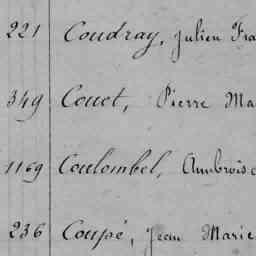 221 Coudray, Julien Fra
349 Couet, Pierre Ma
1169 Coulombel, Ambrois
236 Coupé, Jean Marie